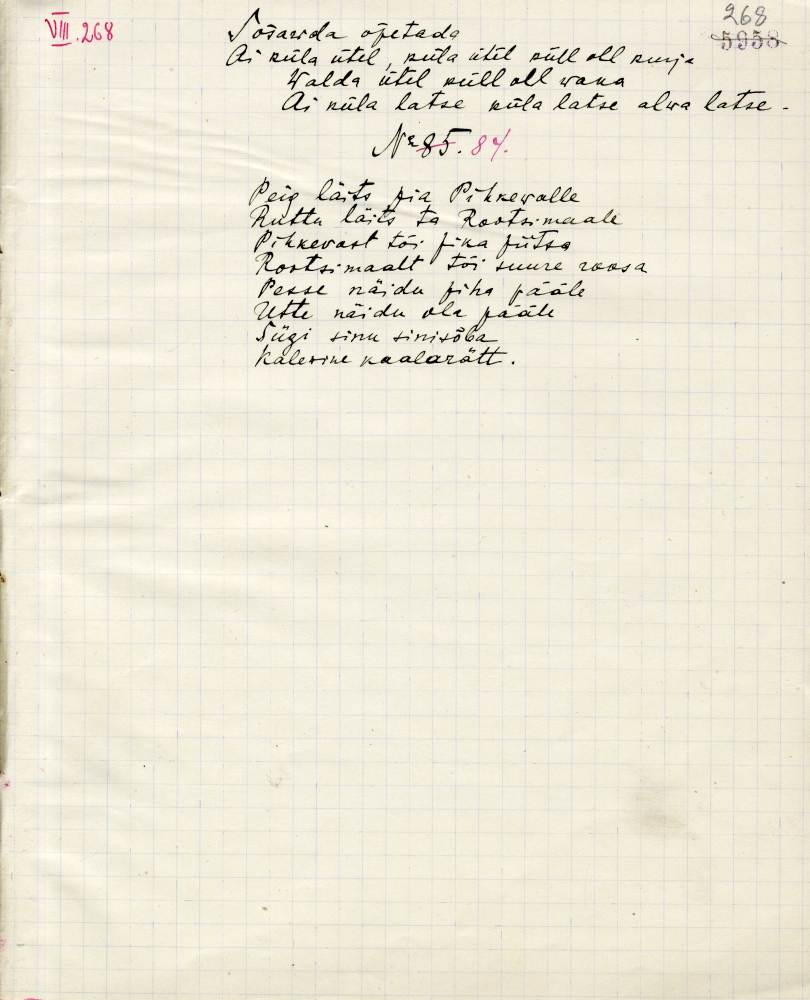 VIII. 268
268
5958
Sõsarda opetada
Ai küla ütel, küla ütel küll oll kurja
Walda ütel küll oll waka
Ai küla latse küla latse alwa latse -
Nr 85. 84.
Peig läits pia Pihkevalle
Ruttu läits ta Rootsimaale
Pihkevast tõi pika piitsa
Rootsimaalt tõi suure roosa
Pesse näidu piha pääle
Utte näidu ola pääle
Sügi sinu sinisõba
Kalevine kaalarätt.